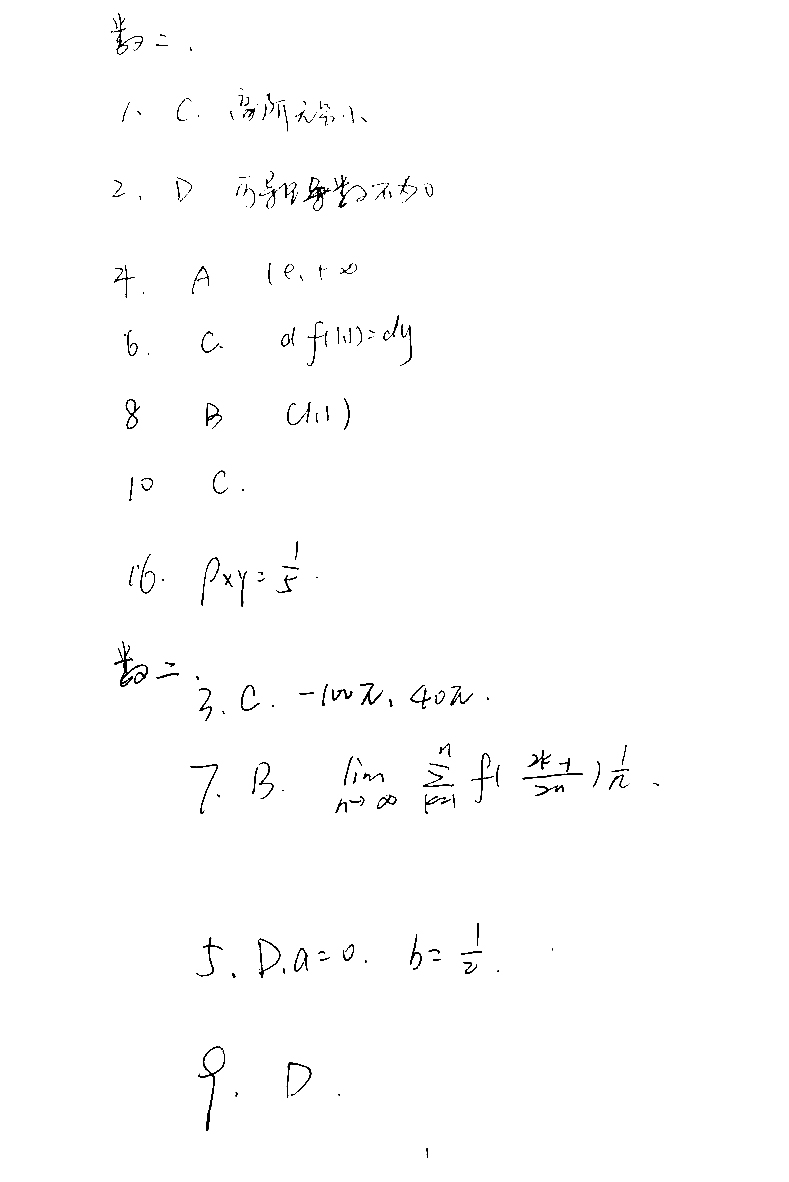 数二.
1、 C. 高阶无穷小
2、 D 可导且导数不为0
4. A (e,+∞
6. C. df(1,1)=dy
8 B (1,1)
10 C.
16. ρxy=1/5.
数二.
3. C. -100π, 40π.
7. B. lim n→∞ ∑ k=1 n f( 2k-1/2n ) 1/n.
5. D. a=0. b=1/2.
9. D.
1